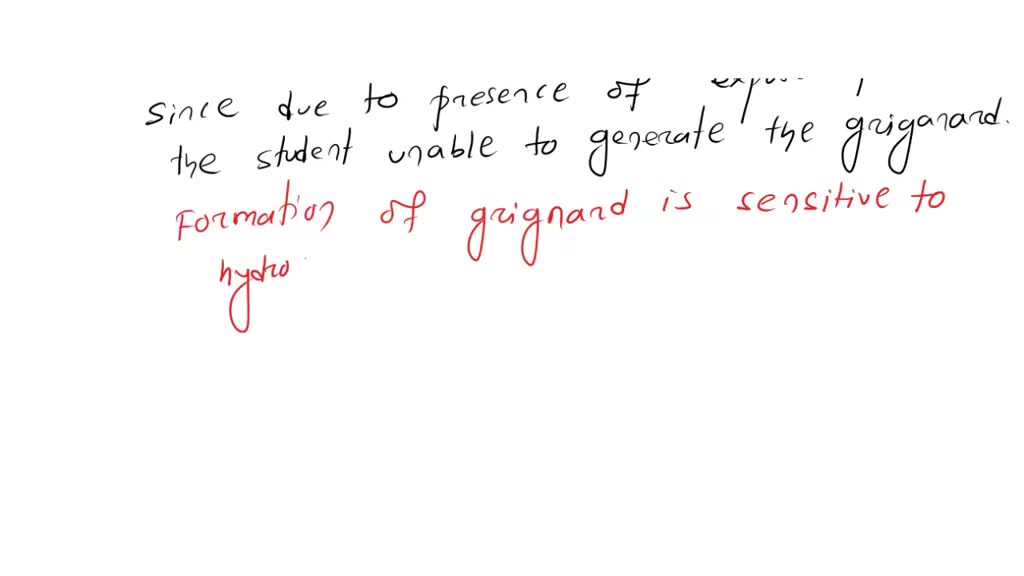 since due to presence of
the student unable to generate the griganard.
Formation of grignard is sensitive to
hydro